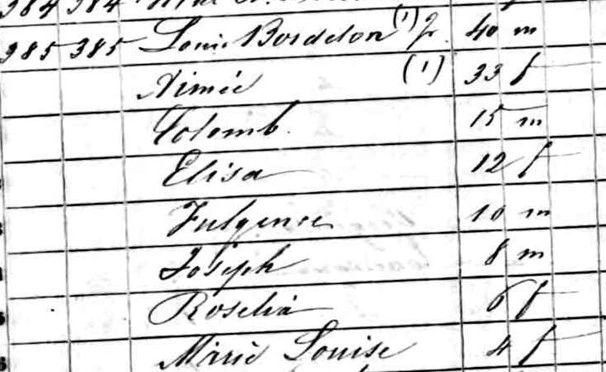 384 384
385 385 Louis Bordelon (1) 40 m
Aimée (1) 33 f
Colomb. 15 m
Elisa 12 f
Fulgence 10 m
Joseph 8 m
Roselia 6 f
Marie Louise 4 f